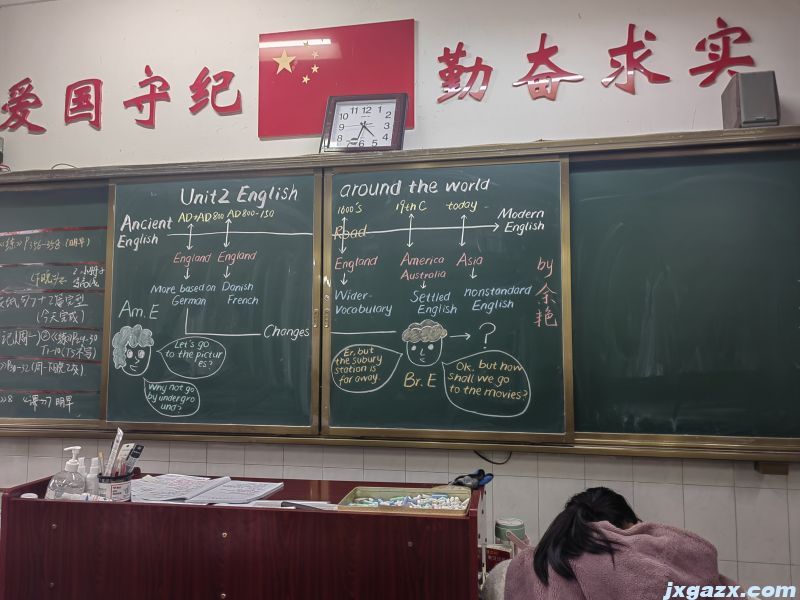 爱国守纪
勤奋求实
Unit2 English around the world
AD→AD800 AD800-150
1600's 19th C today
Ancient English
Road
Modern English
England England
England America Australia Asia
More based on German
Danish French
Wider-Vocabulary
Settled English
nonstandard English
by 余艳
Changes
Am. E
Let's go to the pictures?
Why not go by underground?
Er, but the subury station is far away.
Br. E
?
Ok. but how shall we go to the movies?
(今天完成)
jxgazx.com